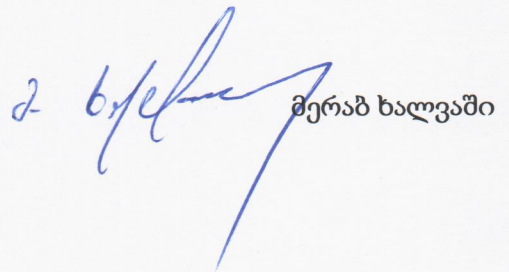 მერაბ ხალვაში